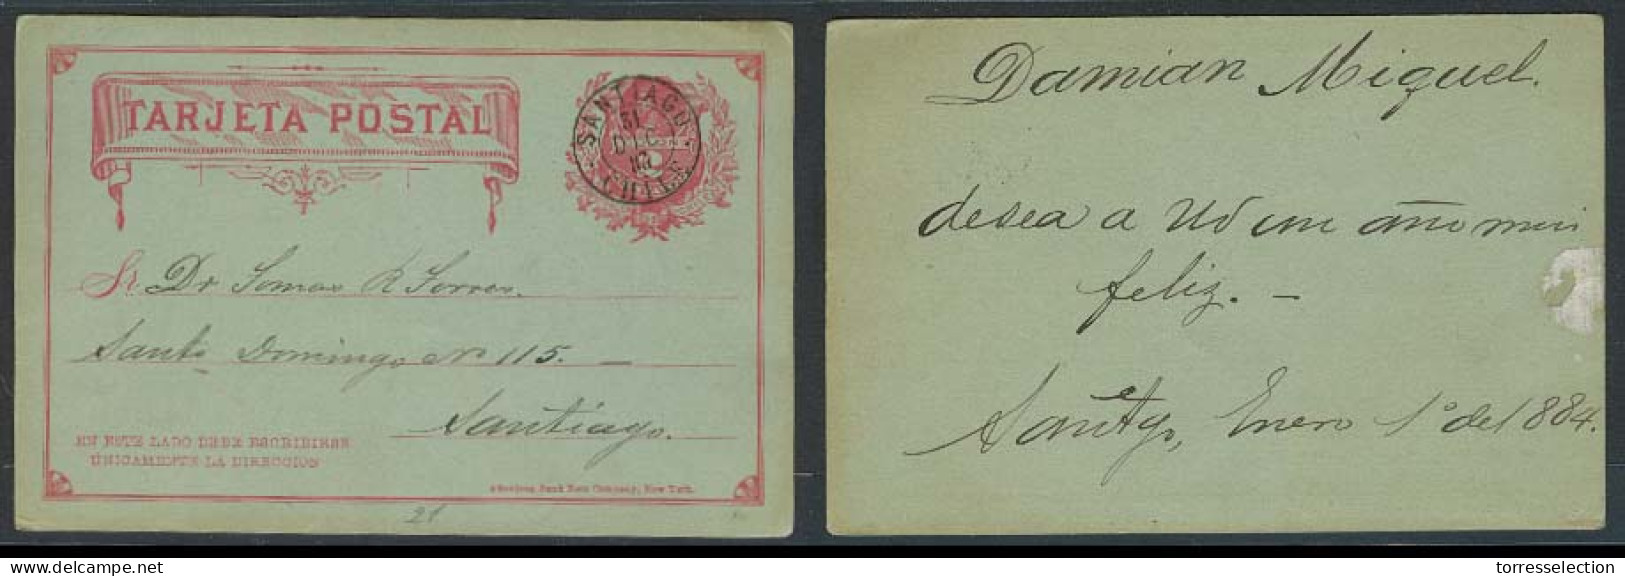 TARJETA POSTAL
SANTIAGO
31
DIC
83
CHILE
Sr. Dr Tomas R Torres.
Santo Domingo No 115. —
Santiago.
EN ESTE LADO DEBE ESCRIBIRSE
ÚNICAMENTE LA DIRECCION
American Bank Note Company, New York.
21
Damian Miguel.
desea a Ud un año mui
feliz. —
Santgo, Enero 1° de 1884.
Delcampe.net
torresselection